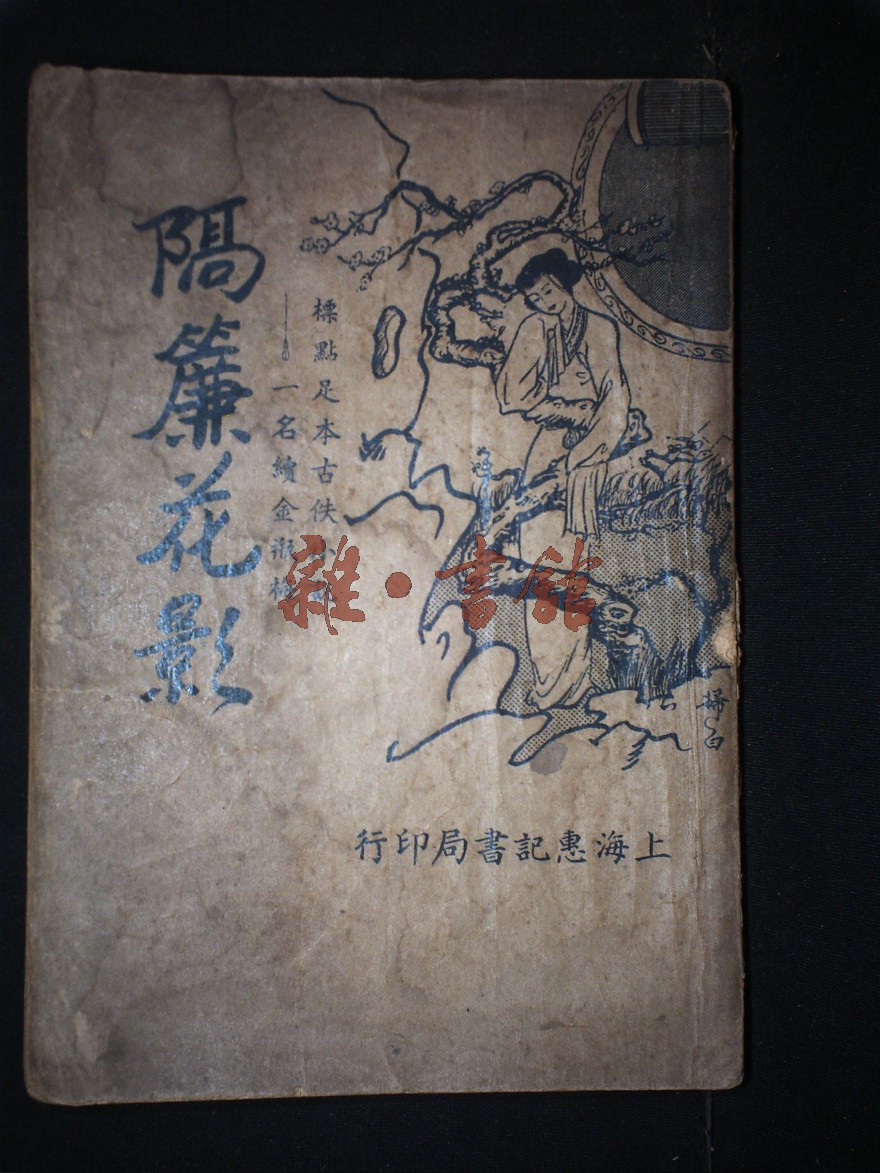 標點足本古佚小說
一名續金瓶梅
隔簾花影
上海惠記書局印行
雜·書館